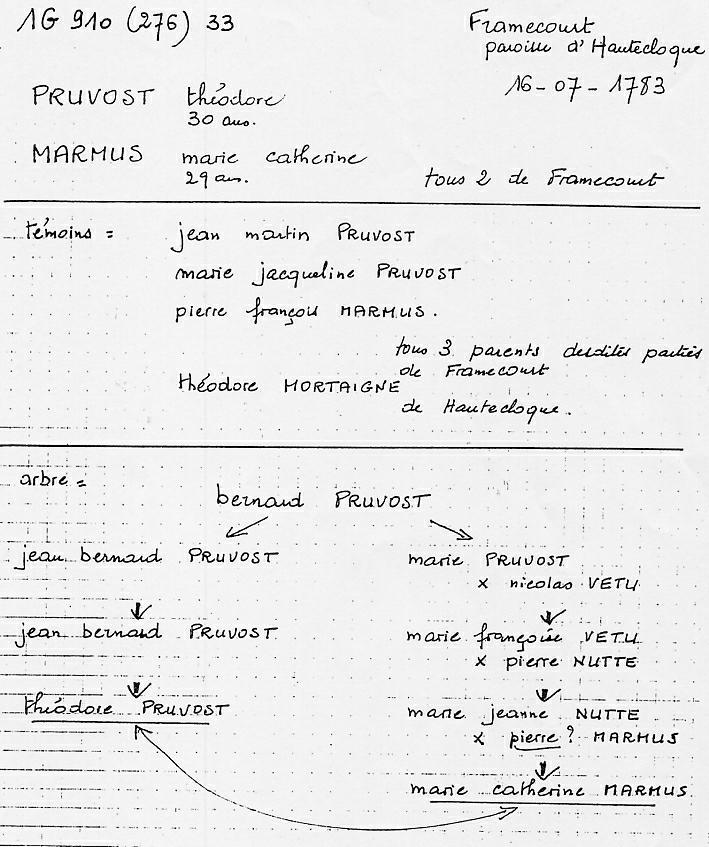 1G 910 (276) 33
Framecourt
paroisse d'Hautecloque
16-07-1783
PRUVOST théodore
30 ans.
MARMUS marie catherine
29 ans.
tous 2 de Framecourt
témoins =
jean martin PRUVOST
marie jacqueline PRUVOST
pierre françois MARMUS.
tous 3 parents desdites parties
de Framecourt
théodore MORTAIGNE
de Hautecloque.
arbre =
bernard PRUVOST
jean bernard PRUVOST
marie PRUVOST
x nicolas VETU
jean bernard PRUVOST
marie françoise VETU
x pierre NUTTE
théodore PRUVOST
marie jeanne NUTTE
x pierre ? MARMUS
marie catherine MARMUS